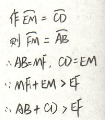 作EM=CD
则FM=AB
∴AB=MF, CD=EM
∵MF+EM>EF
∴AB+CD>EF